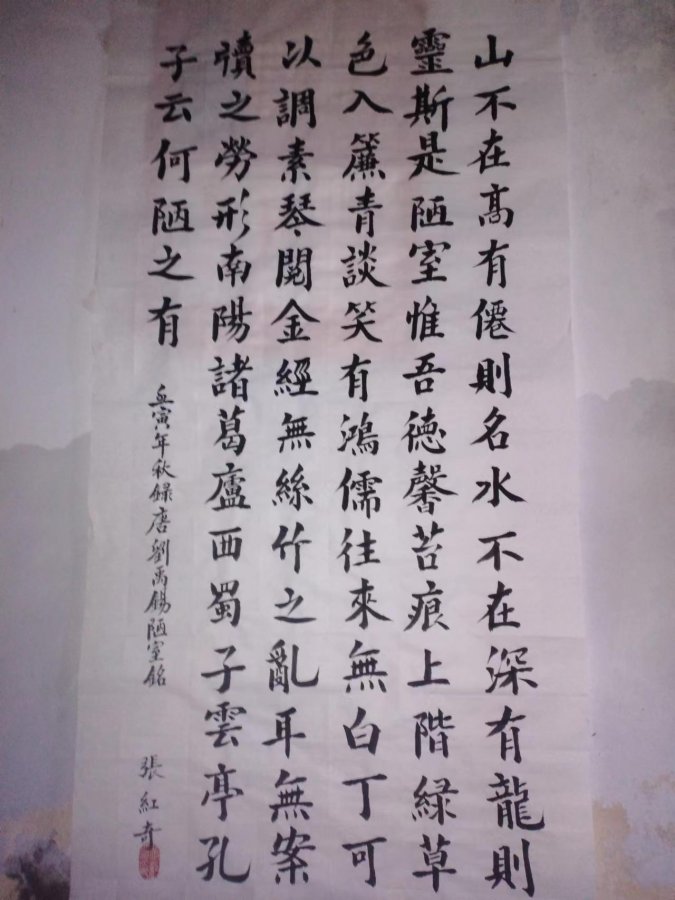 山不在高有僊則名水不在深有龍則
靈斯是陋室惟吾德馨苔痕上階綠草
色入簾青談笑有鴻儒往來無白丁可
以調素琴閱金經無絲竹之亂耳無案
牘之勞形南陽諸葛廬西蜀子雲亭孔
子云何陋之有
壬寅年秋録唐劉禹錫陋室銘
張紅奇